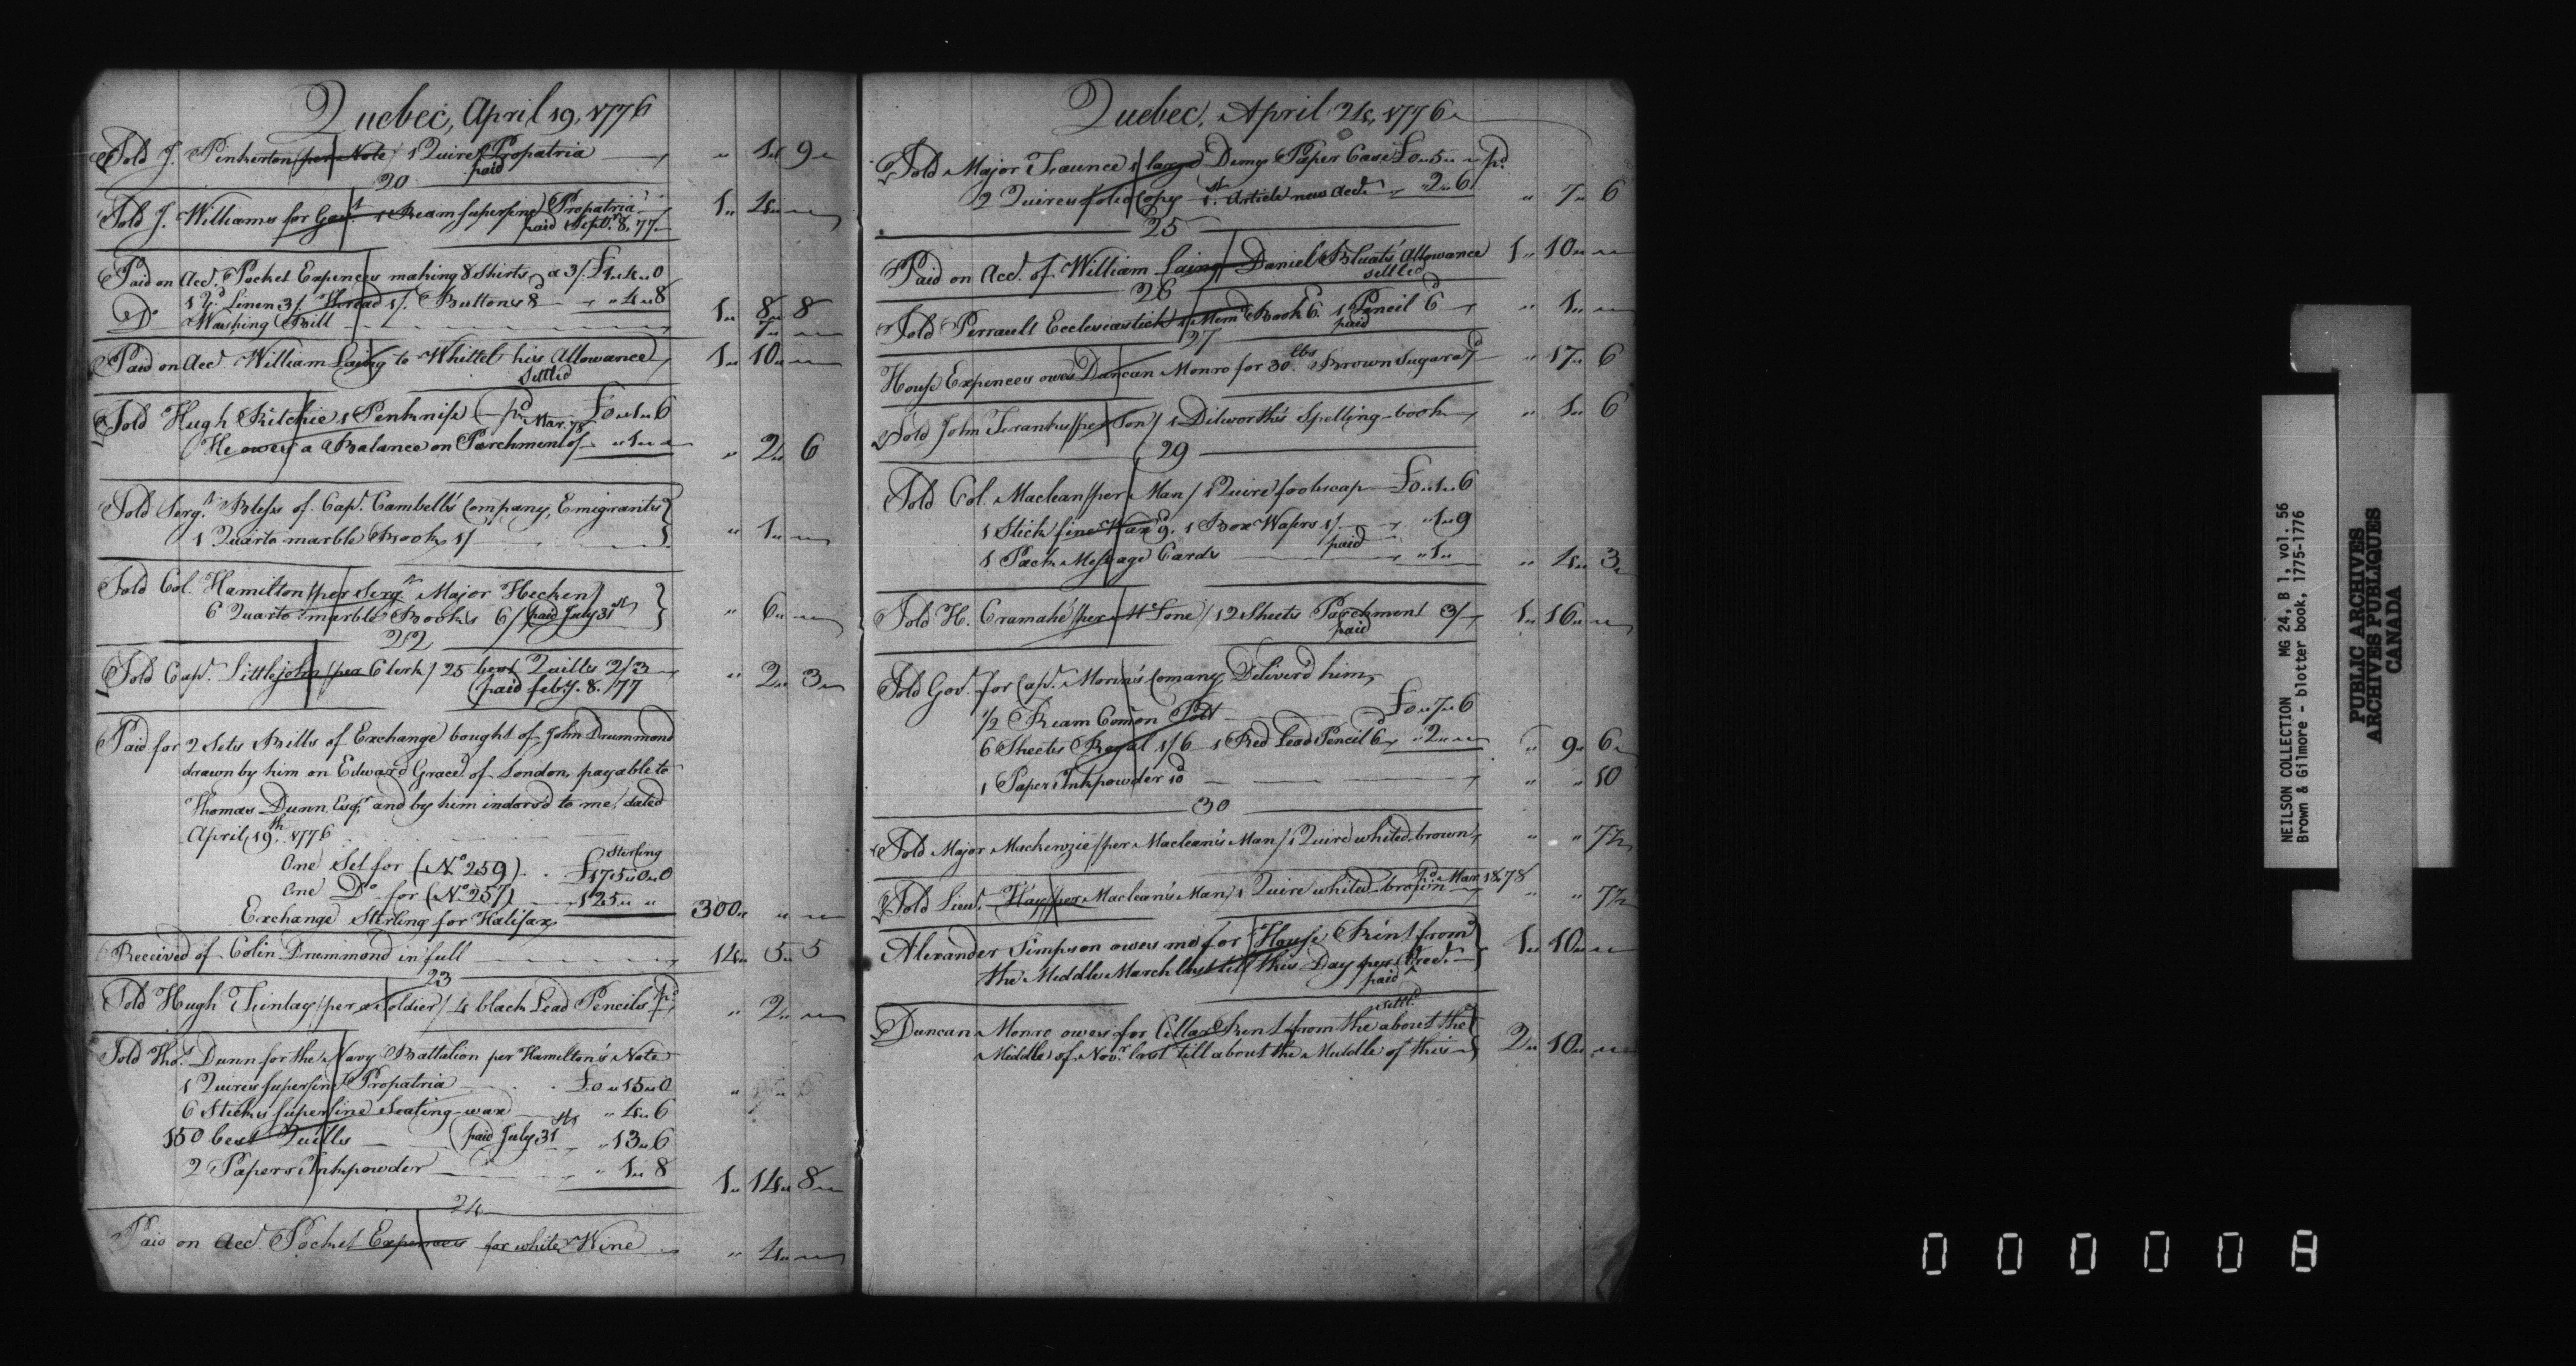 Quebec, April 19, 1776
Sold J. Pinkerton (per Note) 1 Quire Propatria " 1 " 9
paid
20
Sold J. Williams for Gov.t 1 Ream superfine Propatria 1 " 4 "
paid Sept.r 8, 77
Paid on Acc.t Pocket Expences making 8 Shirts a 3/ £1 " 4 " 0
1 Yd. Linen 3/ Thread 1/. Buttons 8d " 4 " 8 1 " 8 " 8
Do Washing Bill 7 "
Paid on Acc.t William Laing to Whittel his Allowance 1 " 10 "
Settled
Sold Hugh Ritchie 1 Penknife (pd. Mar. 78 £0 " 1 " 6
He owes a Balance on Parchment of " 1 " " 2 " 6
Sold Serg.t Bless of Cap.t Cambell's Company, Emigrants
1 Quarto marble Book 1/ " 1 "
Sold Col. Hamilton (per Serg.t Major Hecken)
6 Quarto marble Books 6/ (paid July 31st) " 6 "
22
Sold Cap.t Littlejohn (per Clerk) 25 best Quills 2/3 " 2 " 3
(paid feb.y 8. 177
Paid for 2 Sets Bills of Exchange bought of John Drummond
drawn by him on Edward Grace of London, payable to
Thomas Dunn Esq.r and by him indors'd to me, dated
April 19th. 1776
Sterling
One Set for (No. 259) £175 " 0 " 0
One Do. for (No. 257) 125 " "
Exchange Sterling for Halifax 300 " "
Received of Colin Drummond in full 14 " 5 " 5
23
Sold Hugh Finlay (per a Soldier) 4 black Lead Pencils pd. " 2 "
Sold Tho.s Dunn for the Navy Battalion per Hamilton's Note
1 Quires superfine Propatria £0 " 15 " 0
6 Sticks superfine Sealing-wax " 4 " 6
150 best Quills (paid July 31st " 13 " 6
2 Papers Inkpowder " 1 " 8 1 " 14 " 8
24
Paid on Acc.t Pocket Expences for white Wine " 4 "
Quebec, April 24, 1776
Sold Major Faunce 1 large Demy Paper Case £0 " 5 " pd.
2 Quires folio Copy 1st. Article new Acc.t " 2 " 6 " 7 " 6
25
Paid on Acc.t of William Laing Daniel Allowance 1 " 10 "
settled
26
Sold Perrault Ecclesiastick 1 Mem.d Book 6d. 1 Pencil 6d " 1 "
paid
27
House Expences owes Duncan Monro for 30 lbs. Brown Sugar a 7d " 17 " 6
Sold John (per Son) 1 Dilworth's Spelling-book " 1 " 6
29
Sold Col. Maclean (per Man) 1 Quire foolscap £0 " 1 " 6
1 Stick fine Wax 9d. 1 Box Wafers 1/ " 1 " 9
paid
1 Pack Message Cards " 1 " " 4 " 3
Sold H. Cramahé (per) 12 Sheets Parchment 3/ 1 " 16 "
paid
Sold Gov.t for Cap.t Morin's Comany Deliver'd him,
1/2 Ream Com̄on Pott £0 " 7 " 6
6 Sheets Royal 1/6 1 Red Lead Pencil 6d " 2 " " 9 " 6
1 Paper Inkpowder 10d " " 10
30
Sold Major Mackenzie (per Maclean's Man) 1 Quire whited-brown " " 7½
Sold Lieu.t Hay (per Maclean's Man) 1 Quire whited-brown " " 7½
pd. Mar. 18. 78
Alexander Simpson owes me for House Rent from
the Middle March last till this Day per Cred.t 1 " 10 "
paid
settl.d
Duncan Monro owes for Cellar Rent from the about the
Middle of Nov.r last till about the Middle of this 2 " 10 "
NEILSON COLLECTION MG 24, B 1, vol. 56
Brown & Gilmore - blotter book, 1775-1776
PUBLIC ARCHIVES
ARCHIVES PUBLIQUES
CANADA
000008